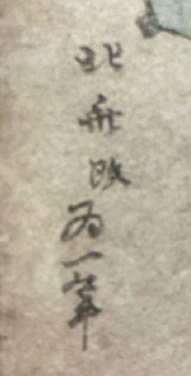 北斎改為一筆